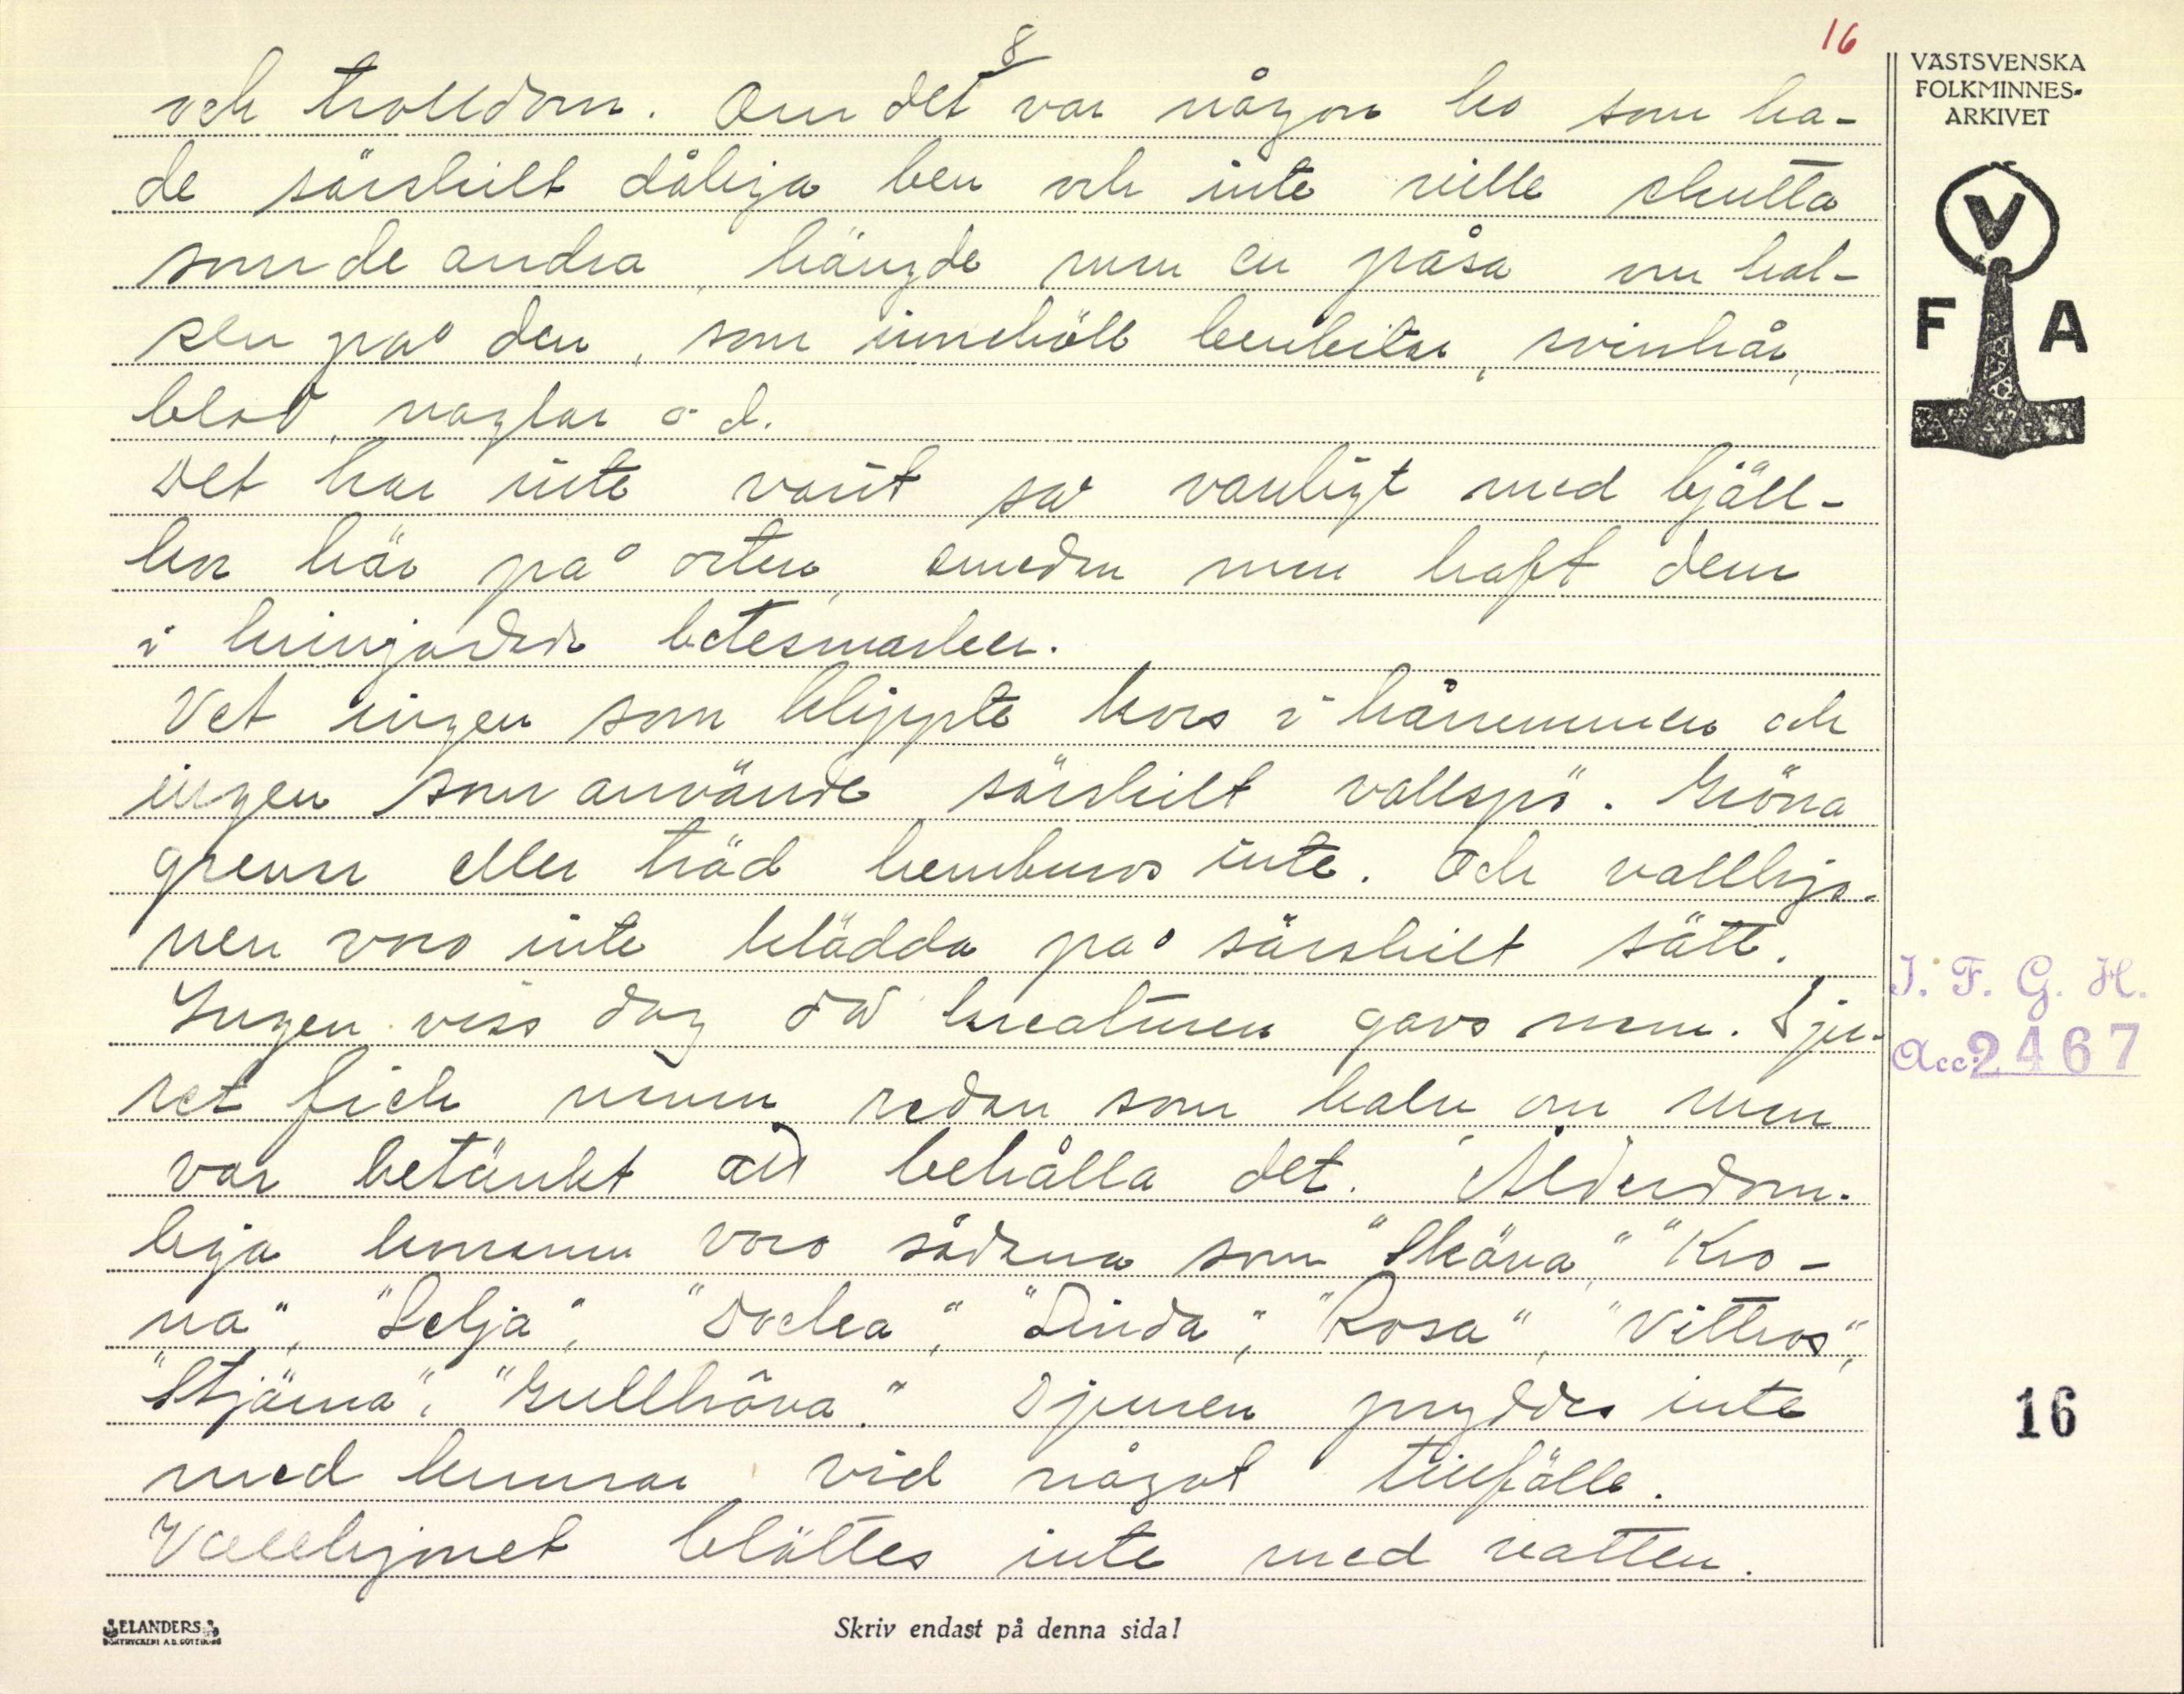 8
16
och trolldom. Om det var någon ko som ha-
de särskilt dåliga ben och inte ville skutta
som de andra, hängde man en påsa om hal-
sen på den, som innehöll benbitar, svinhår,
blod, naglar o d.
Det har inte varit så vanligt med bjäll-
kor här på orten, emedan man haft dem
i kringärdade betesmarker.
Vet ingen som klippte kors i hårremmen och
ingen som använde särskilt vallspö. Gröna
grenar eller träd hemburos inte. Och vallhjo-
nen voro inte klädda på särskilt sätt.
Ingen viss dag då kreaturen gavs namn. Dju-
ret fick namn redan som kalv om man
var betänkt att behålla det. Ålderdom-
liga konamn voro sådana som "Sköna", "Kro-
na", "Selja", "Docka", "Linda", "Rosa", "Vittros",
"Stjärna", "Gullhöna." Djuren pryddes inte
med kransar vid något tillfälle.
Vallhjonet blöttes inte med vatten.
VÄSTSVENSKA
FOLKMINNES-
ARKIVET
V
F A
I. F. G. H.
Acc. 2467
16
ELANDERS
BOKTRYCKERI A.B. GÖTEBORG
Skriv endast på denna sida!